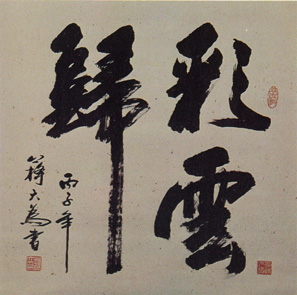 彩雲
歸
丙子年
蔣大為書